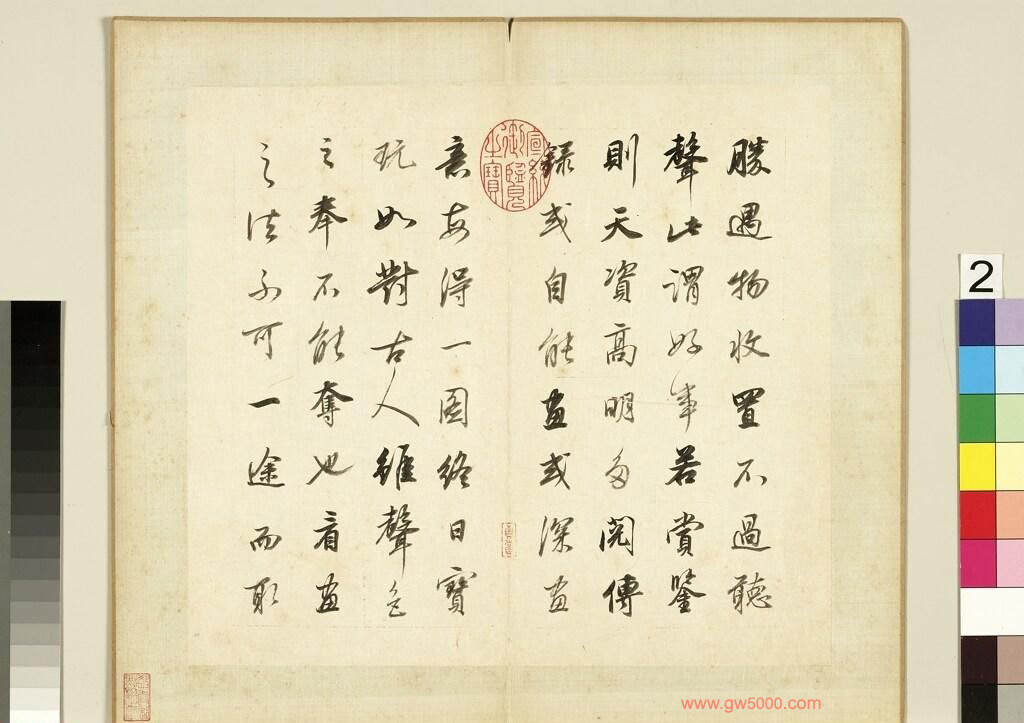 勝遇物收置不過聽
聲此謂好事若賞鑒
則天資高明多閱傳
錄或自能畫或深畫
意每得一圖終日寶
玩如對古人雖聲色
之奉不能奪也看畫
之法不可一途而取
宣統御覽之寶
2
www.gw5000.com